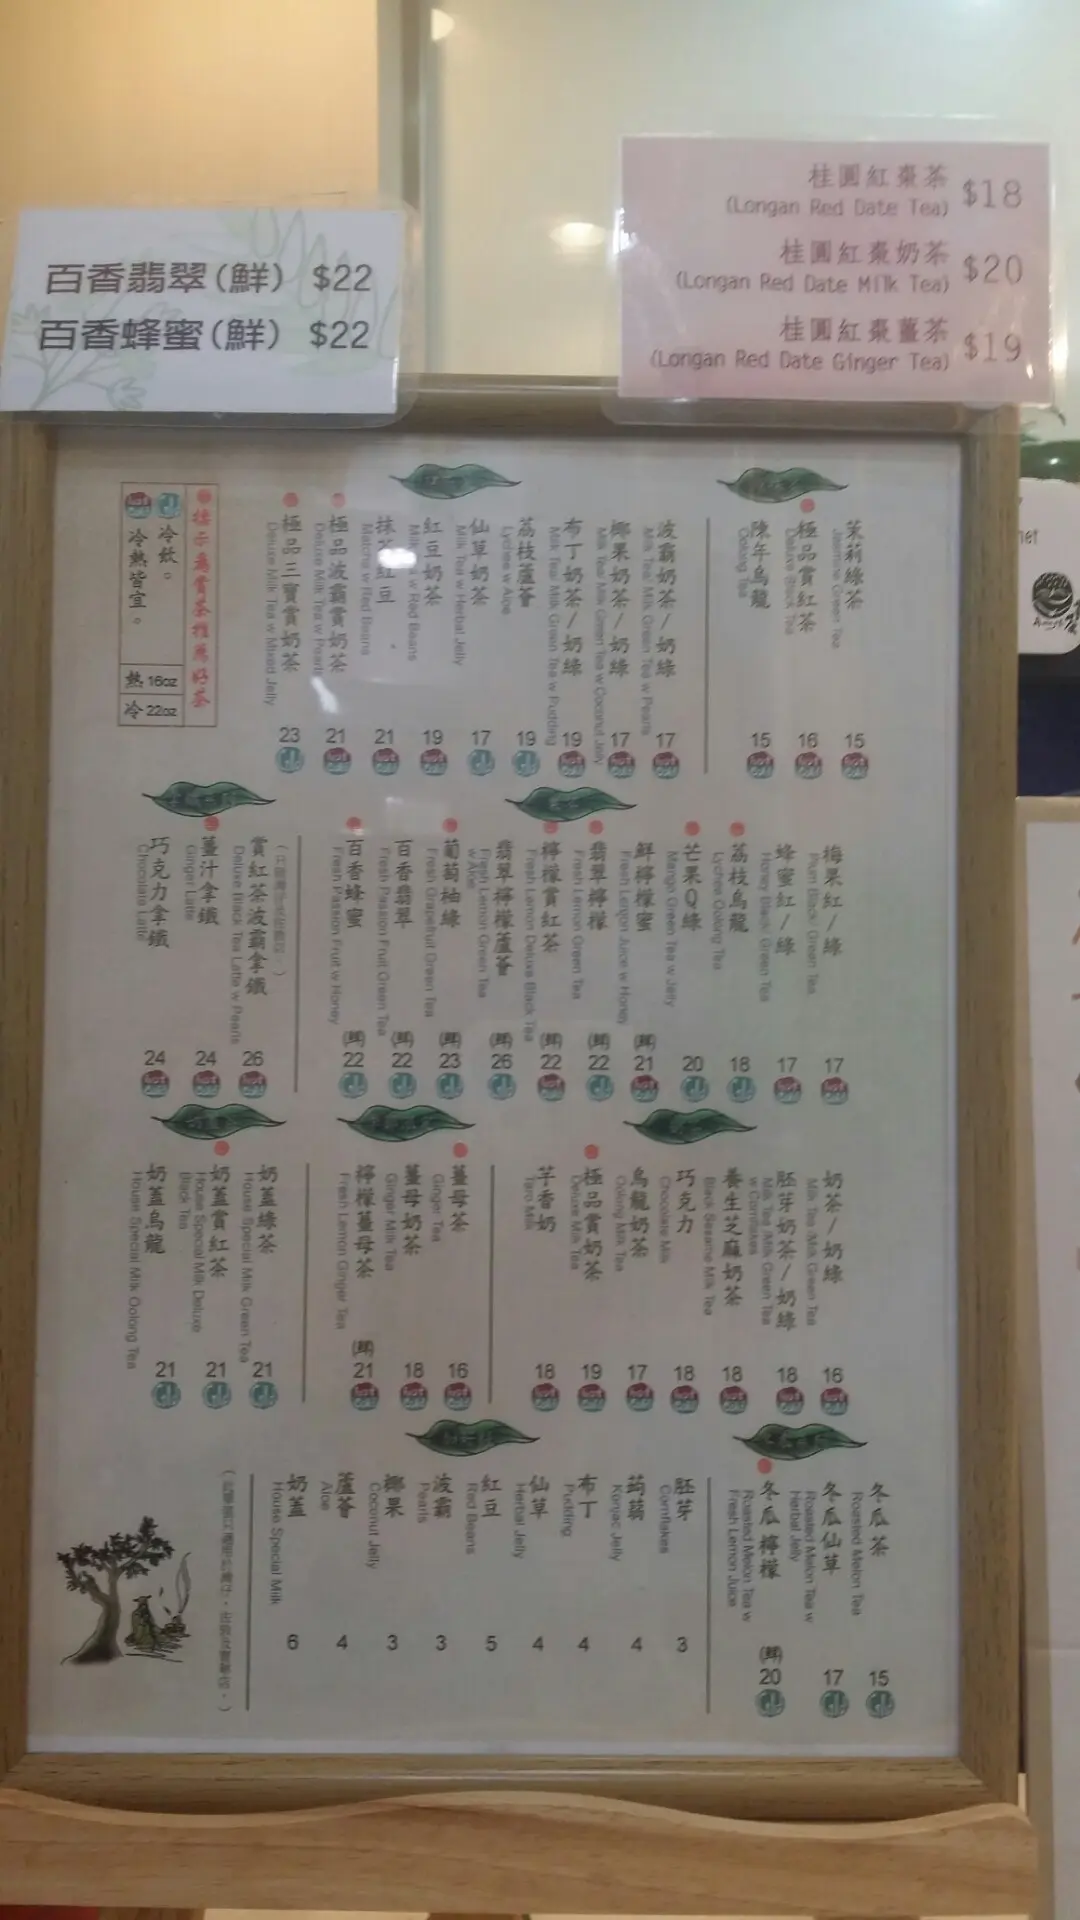 百香翡翠(鮮) $22
百香蜂蜜(鮮) $22
桂圓紅棗茶 $18
(Longan Red Date Tea)
桂圓紅棗奶茶 $20
(Longan Red Date Milk Tea)
桂圓紅棗薑茶 $19
(Longan Red Date Ginger Tea)
茉莉綠茶 15
Jasmine Green Tea
極品賞紅茶 16
Deluxe Black Tea
陳年烏龍 15
Oolong Tea
波霸奶茶/奶綠 17
Milk Tea/ Milk Green Tea w Pearls
椰果奶茶/奶綠 17
Milk Tea/ Milk Green Tea w Coconut Jelly
布丁奶茶/奶綠 19
Milk Tea/ Milk Green Tea w Pudding
荔枝蘆薈 19
Lychee w Aloe
仙草奶茶 17
Milk Tea w Herbal Jelly
紅豆奶茶 19
Milk Tea w Red Beans
抹茶紅豆 21
Matcha w Red Beans
極品波霸賞奶茶 21
Deluxe Milk Tea w Pearls
極品三寶賞奶茶 23
Deluxe Milk Tea w Mixed Jelly
標示為賞茶推薦好茶
冷飲。
冷熱皆宜。
熱 16oz
冷 22oz
梅果紅/綠 17
Plum Black/ Green Tea
蜂蜜紅/綠 17
Honey Black/ Green Tea
荔枝烏龍 18
Lychee Oolong Tea
芒果Q綠 20
Mango Green Tea w Jelly
鮮檸檬蜜 (鮮) 21
Fresh Lemon Juice w Honey
翡翠檸檬 (鮮) 22
Fresh Lemon Green Tea
檸檬賞紅茶 (鮮) 22
Fresh Lemon Deluxe Black Tea
翡翠檸檬蘆薈 (鮮) 26
Fresh Lemon Green Tea
w Aloe
葡萄柚綠 (鮮) 23
Fresh Grapefruit Green Tea
百香翡翠 (鮮) 22
Fresh Passion Fruit Green Tea
百香蜂蜜 (鮮) 22
Fresh Passion Fruit w Honey
賞紅茶波霸拿鐵 26
Deluxe Black Tea Latte w Pearls
薑汁拿鐵 24
Ginger Latte
巧克力拿鐵 24
Chocolate Latte
奶茶/奶綠 16
Milk Tea /Milk Green Tea
胚芽奶茶/奶綠 18
Milk Tea /Milk Green Tea
w Cornflakes
養生芝麻奶茶 18
Black Sesame Milk Tea
巧克力 18
Chocolate Milk
烏龍奶茶 17
Oolong Milk Tea
極品賞奶茶 19
Deluxe Milk Tea
芋香奶 18
Taro Milk
薑母茶 16
Ginger Tea
薑母奶茶 18
Ginger Milk Tea
檸檬薑母茶 (鮮) 21
Fresh Lemon Ginger Tea
奶蓋綠茶 21
House Special Milk Green Tea
奶蓋賞紅茶 21
House Special Milk Deluxe
Black Tea
奶蓋烏龍 21
House Special Milk Oolong Tea
冬瓜茶 15
Roasted Melon Tea
冬瓜仙草 17
Roasted Melon Tea w
Herbal Jelly
冬瓜檸檬 (鮮) 20
Roasted Melon Tea w
Fresh Lemon Juice
胚芽 3
Cornflakes
蒟蒻 4
Konjac Jelly
布丁 4
Pudding
仙草 4
Herbal Jelly
紅豆 5
Red Beans
波霸 3
Pearls
椰果 3
Coconut Jelly
蘆薈 4
Aloe
奶蓋 6
House Special Milk